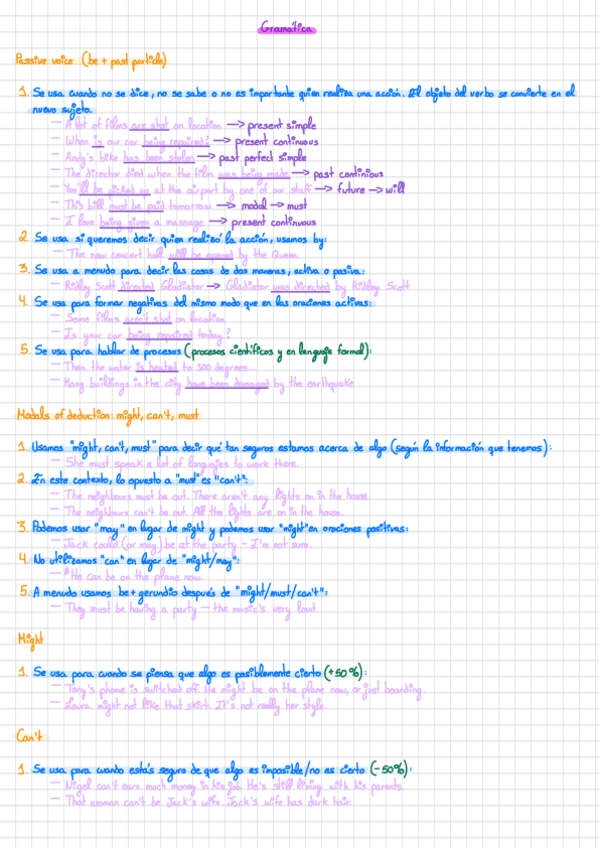 Gramática
Passive voice (be + past participle)
1. Se usa cuando no se dice, no se sabe o no es importante quien realiza una acción. El objeto del verbo se convierte en el
nuevo sujeto.
— A lot of films are shot on location → present simple
— When is our car being repaired? → present continuous
— Andy's bike has been stolen → past perfect simple
— The director died when the film was being made → past continious
— You'll be picked up at the airport by one of our staff → future → will
— This bill must be paid tomorrow → modal → must
— I love being given a massage → present continuous
2. Se usa si queremos decir quien realizó la acción, usamos by:
— The new concert hall will be opened by the Queen.
3. Se usa a menudo para decir las cosas de dos maneras, activa o pasiva:
— Ridley Scott directed Gladiator → Gladiator was directed by Ridley Scott
4. Se usa para formar negativas del mismo modo que en las oraciones activas:
— Some films aren't shot on location
— Is your car being repaired today?
5. Se usa para hablar de procesos (procesos científicos y en lenguaje formal):
— Then the water is heated to 100 degrees
— Many buildings in the city have been damaged by the earthquake
Modals of deduction: might, can't, must
1. Usamos "might, can't, must" para decir qué tan seguros estamos acerca de algo (según la información que tenemos):
— She must speak a lot of languajes to work there.
2. En este contexto, lo opuesto a "must" es "can't":
— The neighbours must be out. There aren't any lights on in the house.
— The neighbours can't be out. All the lights are on in the house.
3. Podemos usar "may" en lugar de might y podemos usar "might" en oraciones positivas:
— Jack could (or may) be at the party - I'm not sure.
4. No utilizamos "can" en lugar de "might/may":
— *He can be on the plane now
5. A menudo usamos be + gerundio después de "might/must/can't":
— They must be having a party — the music's very loud.
Might
1. Se usa para cuando se piensa que algo es posiblemente cierto (+50%):
— Tony's phone is switched off. He might be on the plane now, or just boarding.
— Laura might not like that skirt. It's not really her style.
Can't
1. Se usa para cuando estás seguro de que algo es imposible/no es cierto (-50%):
— Nigel can't earn much money in his job. He's still living with his parents.
— That woman can't be Jack's wife. Jack's wife has dark hair